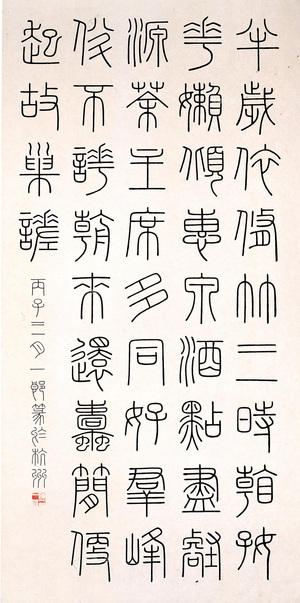 半歲依修竹三時看好
花嬾傾惠泉酒點盡壑
源茶主席多同好羣峰
伴不譁朝來還蠹簡便
起故巢嗟
丙子三月一篆於杭州